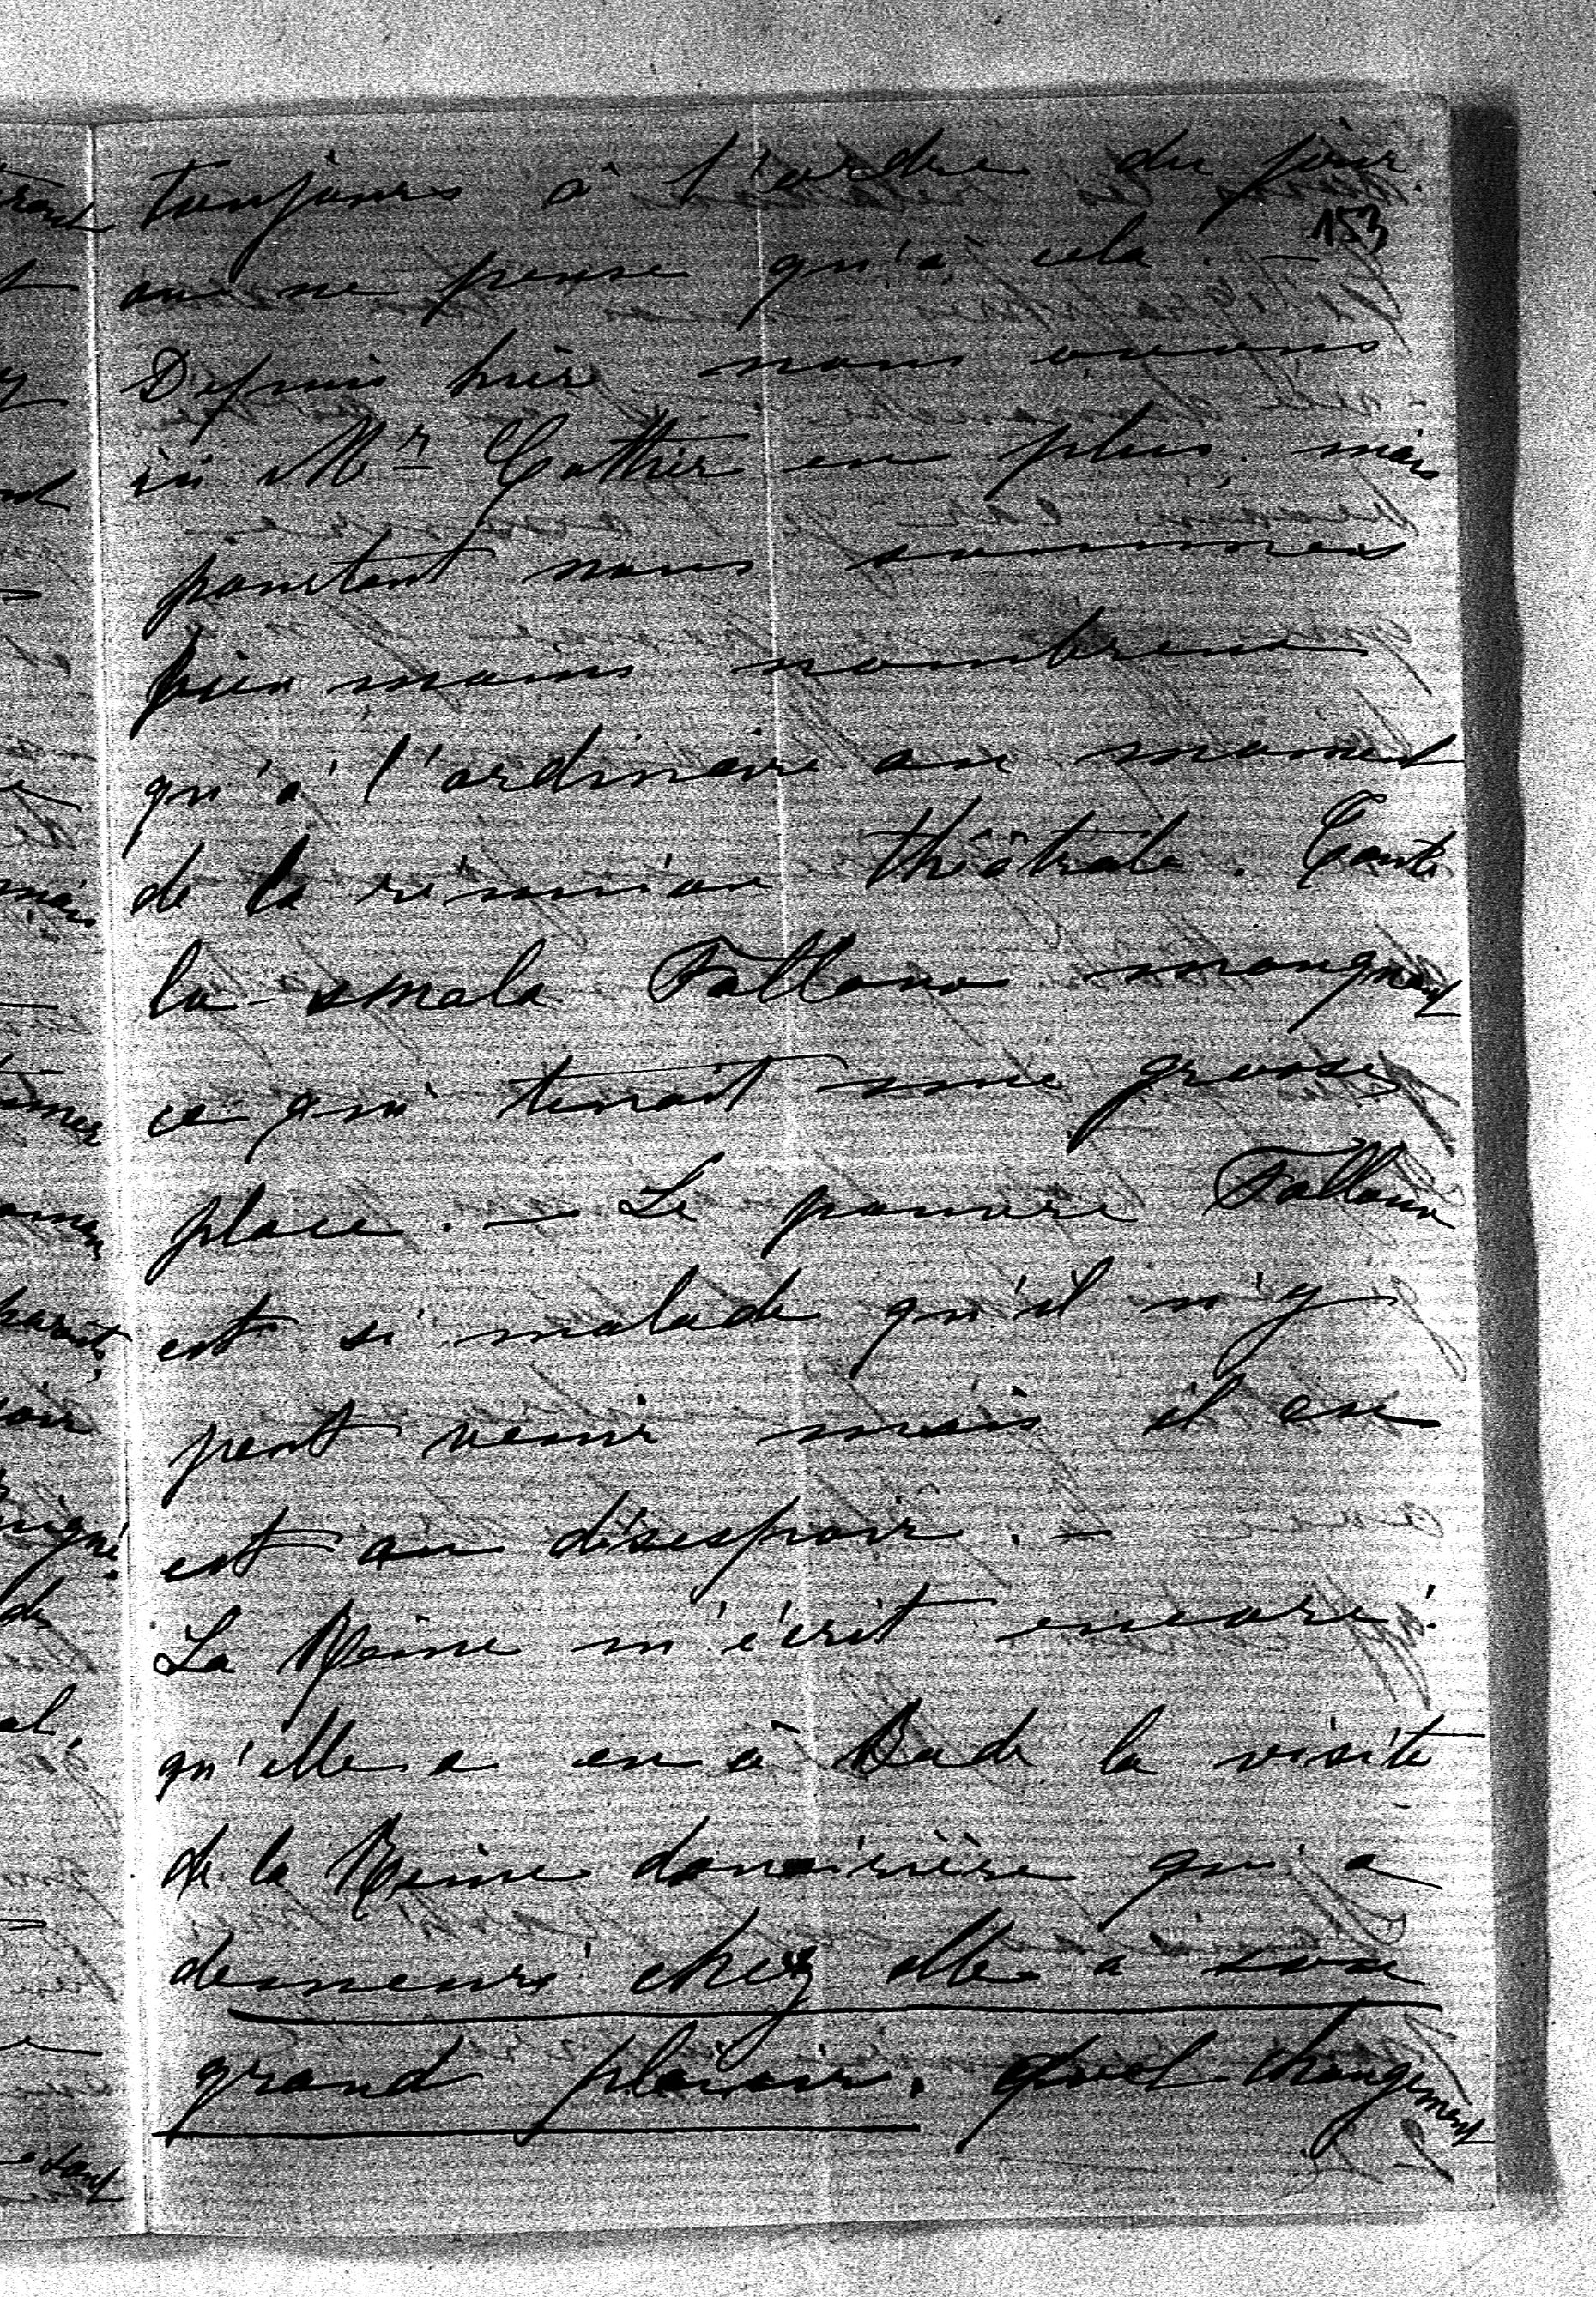 toujours à l'ordre du jour.
153
on ne pense qu'à cela. —
Depuis hier nous avons
ici Mr Gottier en plus, mais
pourtant nous sommes
bien moins nombreux
qu'à l'ordinaire au moment
de la réunion théâtrale. Toute
la smala Falloux manquant
ce qui tenait une grosse
place. — Le pauvre Falloux
est si malade qu'il n'y
peut venir mais il en
est au désespoir. —
La Reine m'écrit encore!
qu'elle a eu à Bade la visite
de la Reine douairière qui a
demeuré chez elle à son
grand plaisir. Quel changement